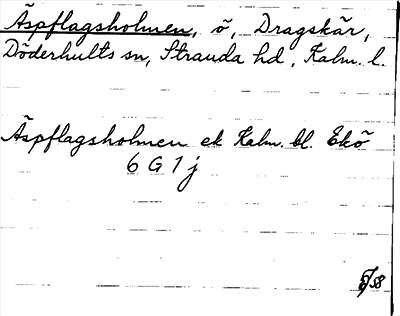 Äspflagsholmen, ö, Dragskär,
Döderhults sn, Stranda hd, Kalm. l.
Äspflagsholmen ek Kalm. bl. Ekö
6 G 1 j